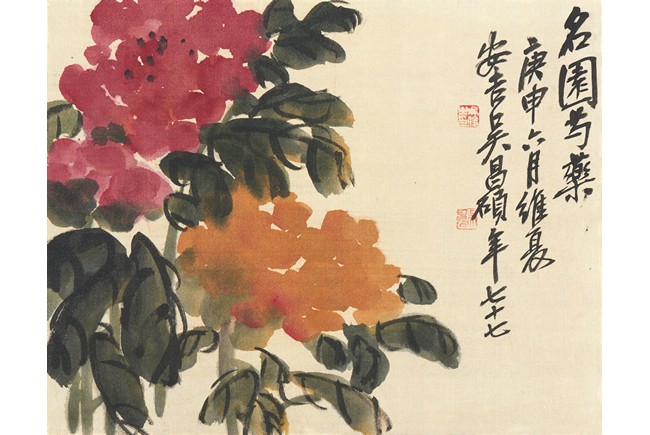 名園芍藥
庚申六月維夏
安吉吳昌碩年七十七